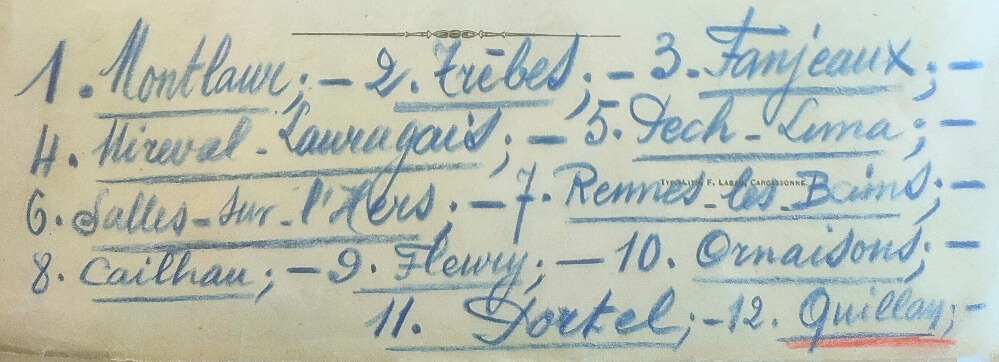 1. Montlaur; - 2. Trèbes; - 3. Fanjeaux; -
4. Mireval-Lauragais; - 5. Pech-Luna; -
Typ.-Lith. F. Labau, Carcassonne.
6. Salles-sur-l'Hers; - 7. Rennes-les-Bains; -
8. Cailhau; - 9. Fleury; - 10. Ornaisons; -
11. Portel; - 12. Quillan; -